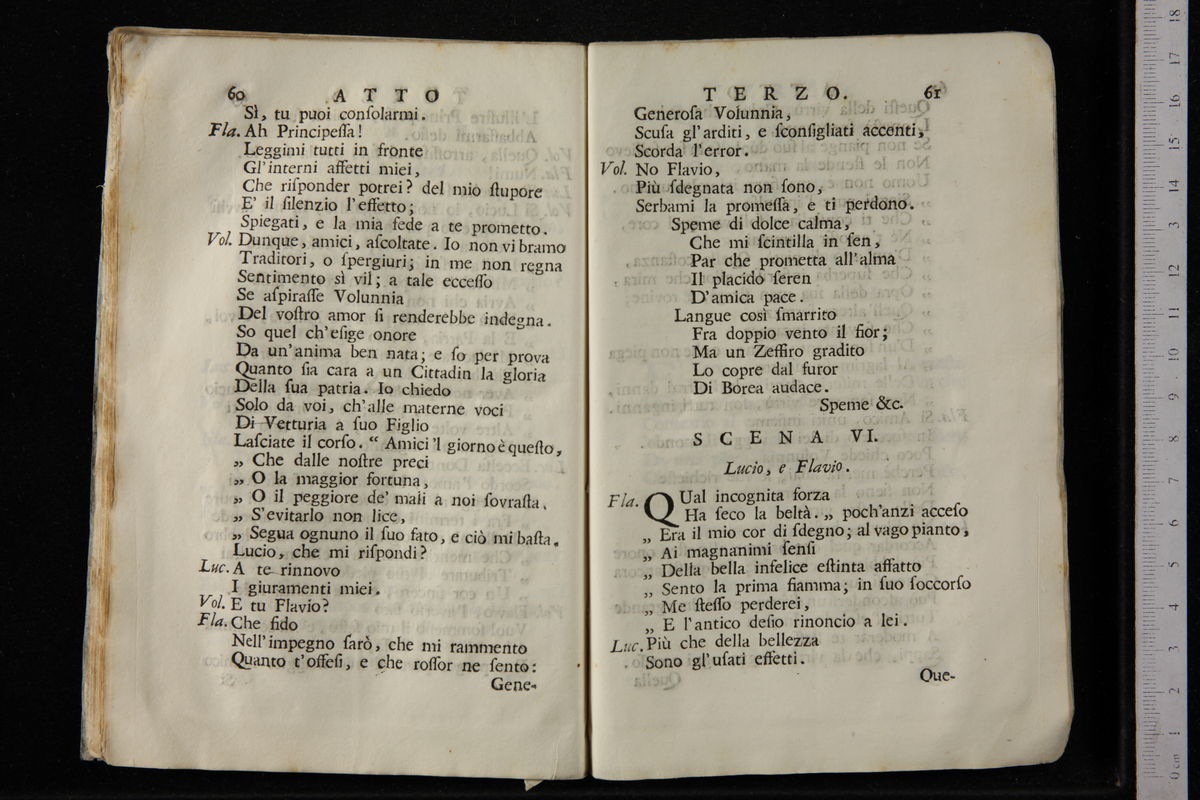 60 ATTO
Sì, tu puoi conſolarmi.
Fla. Ah Principeſſa!
Leggimi tutti in fronte
Gl'interni affetti miei,
Che riſponder potrei? del mio ſtupore
E' il ſilenzio l'effetto;
Spiegati, e la mia fede a te prometto.
Vol. Dunque, amici, aſcoltate. Io non vi bramo
Traditori, o ſpergiuri; in me non regna
Sentimento sì vil; a tale ecceſſo
Se aſpiraſſe Volunnia
Del voſtro amor ſi renderebbe indegna.
So quel ch'eſige onore
Da un'anima ben nata; e ſo per prova
Quanto ſia cara a un Cittadin la gloria
Della ſua patria. Io chiedo
Solo da voi, ch'alle materne voci
Di Vetturia a ſuo Figlio
Laſciate il corſo. “ Amici 'l giorno è queſto,
„ Che dalle noſtre preci
„ O la maggior fortuna,
„ O il peggiore de' mali a noi ſovraſta.
„ S'evitarlo non lice,
„ Segua ognuno il ſuo fato, e ciò mi baſta.
Lucio, che mi riſpondi?
Luc. A te rinnovo
I giuramenti miei.
Vol. E tu Flavio?
Fla. Che fido
Nell'impegno ſarò, che mi rammento
Quanto t'offeſi, e che roſſor ne ſento:
Gene-
TERZO. 61
Generoſa Volunnia,
Scuſa gl'arditi, e ſconſigliati accenti,
Scorda l'error.
Vol. No Flavio,
Più ſdegnata non ſono,
Serbami la promeſſa, e ti perdono.
Speme di dolce calma,
Che mi ſcintilla in ſen,
Par che prometta all'alma
Il placido ſeren
D'amica pace.
Langue così ſmarrito
Fra doppio vento il fior;
Ma un Zeffiro gradito
Lo copre dal furor
Di Borea audace.
Speme &c.
SCENA VI.
Lucio, e Flavio.
Fla. QUal incognita forza
Ha ſeco la beltà. „ poch'anzi acceſo
„ Era il mio cor di ſdegno; al vago pianto,
„ Ai magnanimi ſenſi
„ Della bella infelice eſtinta affatto
„ Sento la prima fiamma; in ſuo ſoccorſo
„ Me ſteſſo perderei,
„ E l'antico deſio rinoncio a lei.
Luc. Più che della bellezza
Sono gl'uſati effetti.
Que-